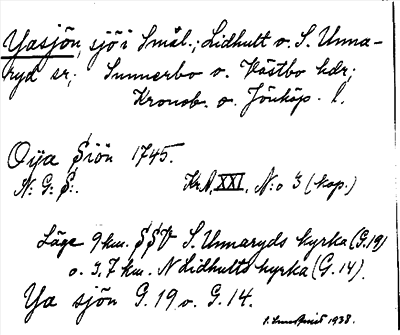 Yasjön, sjö i Smål.; Lidhult o. S. Unna-
ryd sr; Sunnerbo o. Västbo hdr;
Kronob. o. Jönköp. l.
Oya Siön 1745.
N: G: S:. Kr. A, XXI, N:o 3 (kop.)
Läge 9 km. SSV S. Unnaryds kyrka (G.19)
o. 3,7 km. N Lidhults kyrka (G.14).
Ya sjön G.19 o. G.14.
1938.